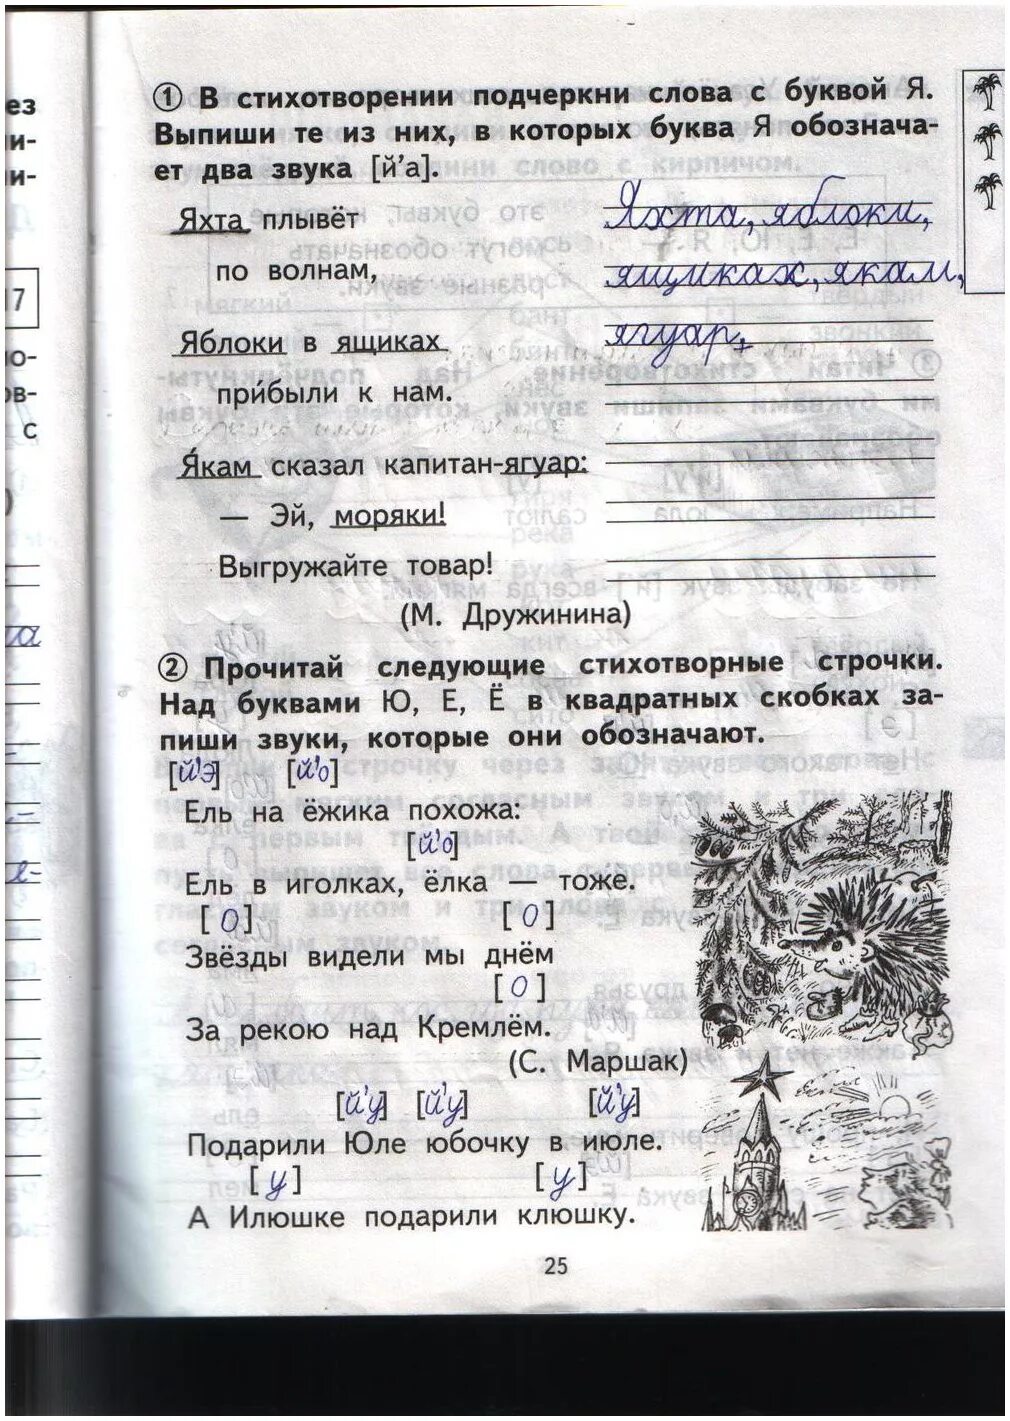 ез
и-
и-
17
о-
ов-
с
)
а
е-
① В стихотворении подчеркни слова с буквой Я.
Выпиши те из них, в которых буква Я обознача-
ет два звука [й’а].
Яхта плывёт
Яхта, яблоки,
по волнам,
ящиках, якам,
Яблоки в ящиках
ягуар,
прибыли к нам.
Якам сказал капитан-ягуар:
— Эй, моряки!
Выгружайте товар!
(М. Дружинина)
② Прочитай следующие стихотворные строчки.
Над буквами Ю, Е, Ё в квадратных скобках за-
пиши звуки, которые они обозначают.
[й’э] [й’о]
Ель на ёжика похожа:
[й’о]
Ель в иголках, ёлка — тоже.
[о] [о]
Звёзды видели мы днём
[о]
За рекою над Кремлём.
(С. Маршак)
[й’у] [й’у] [й’у]
Подарили Юле юбочку в июле.
[у] [у]
А Илюшке подарили клюшку.
25